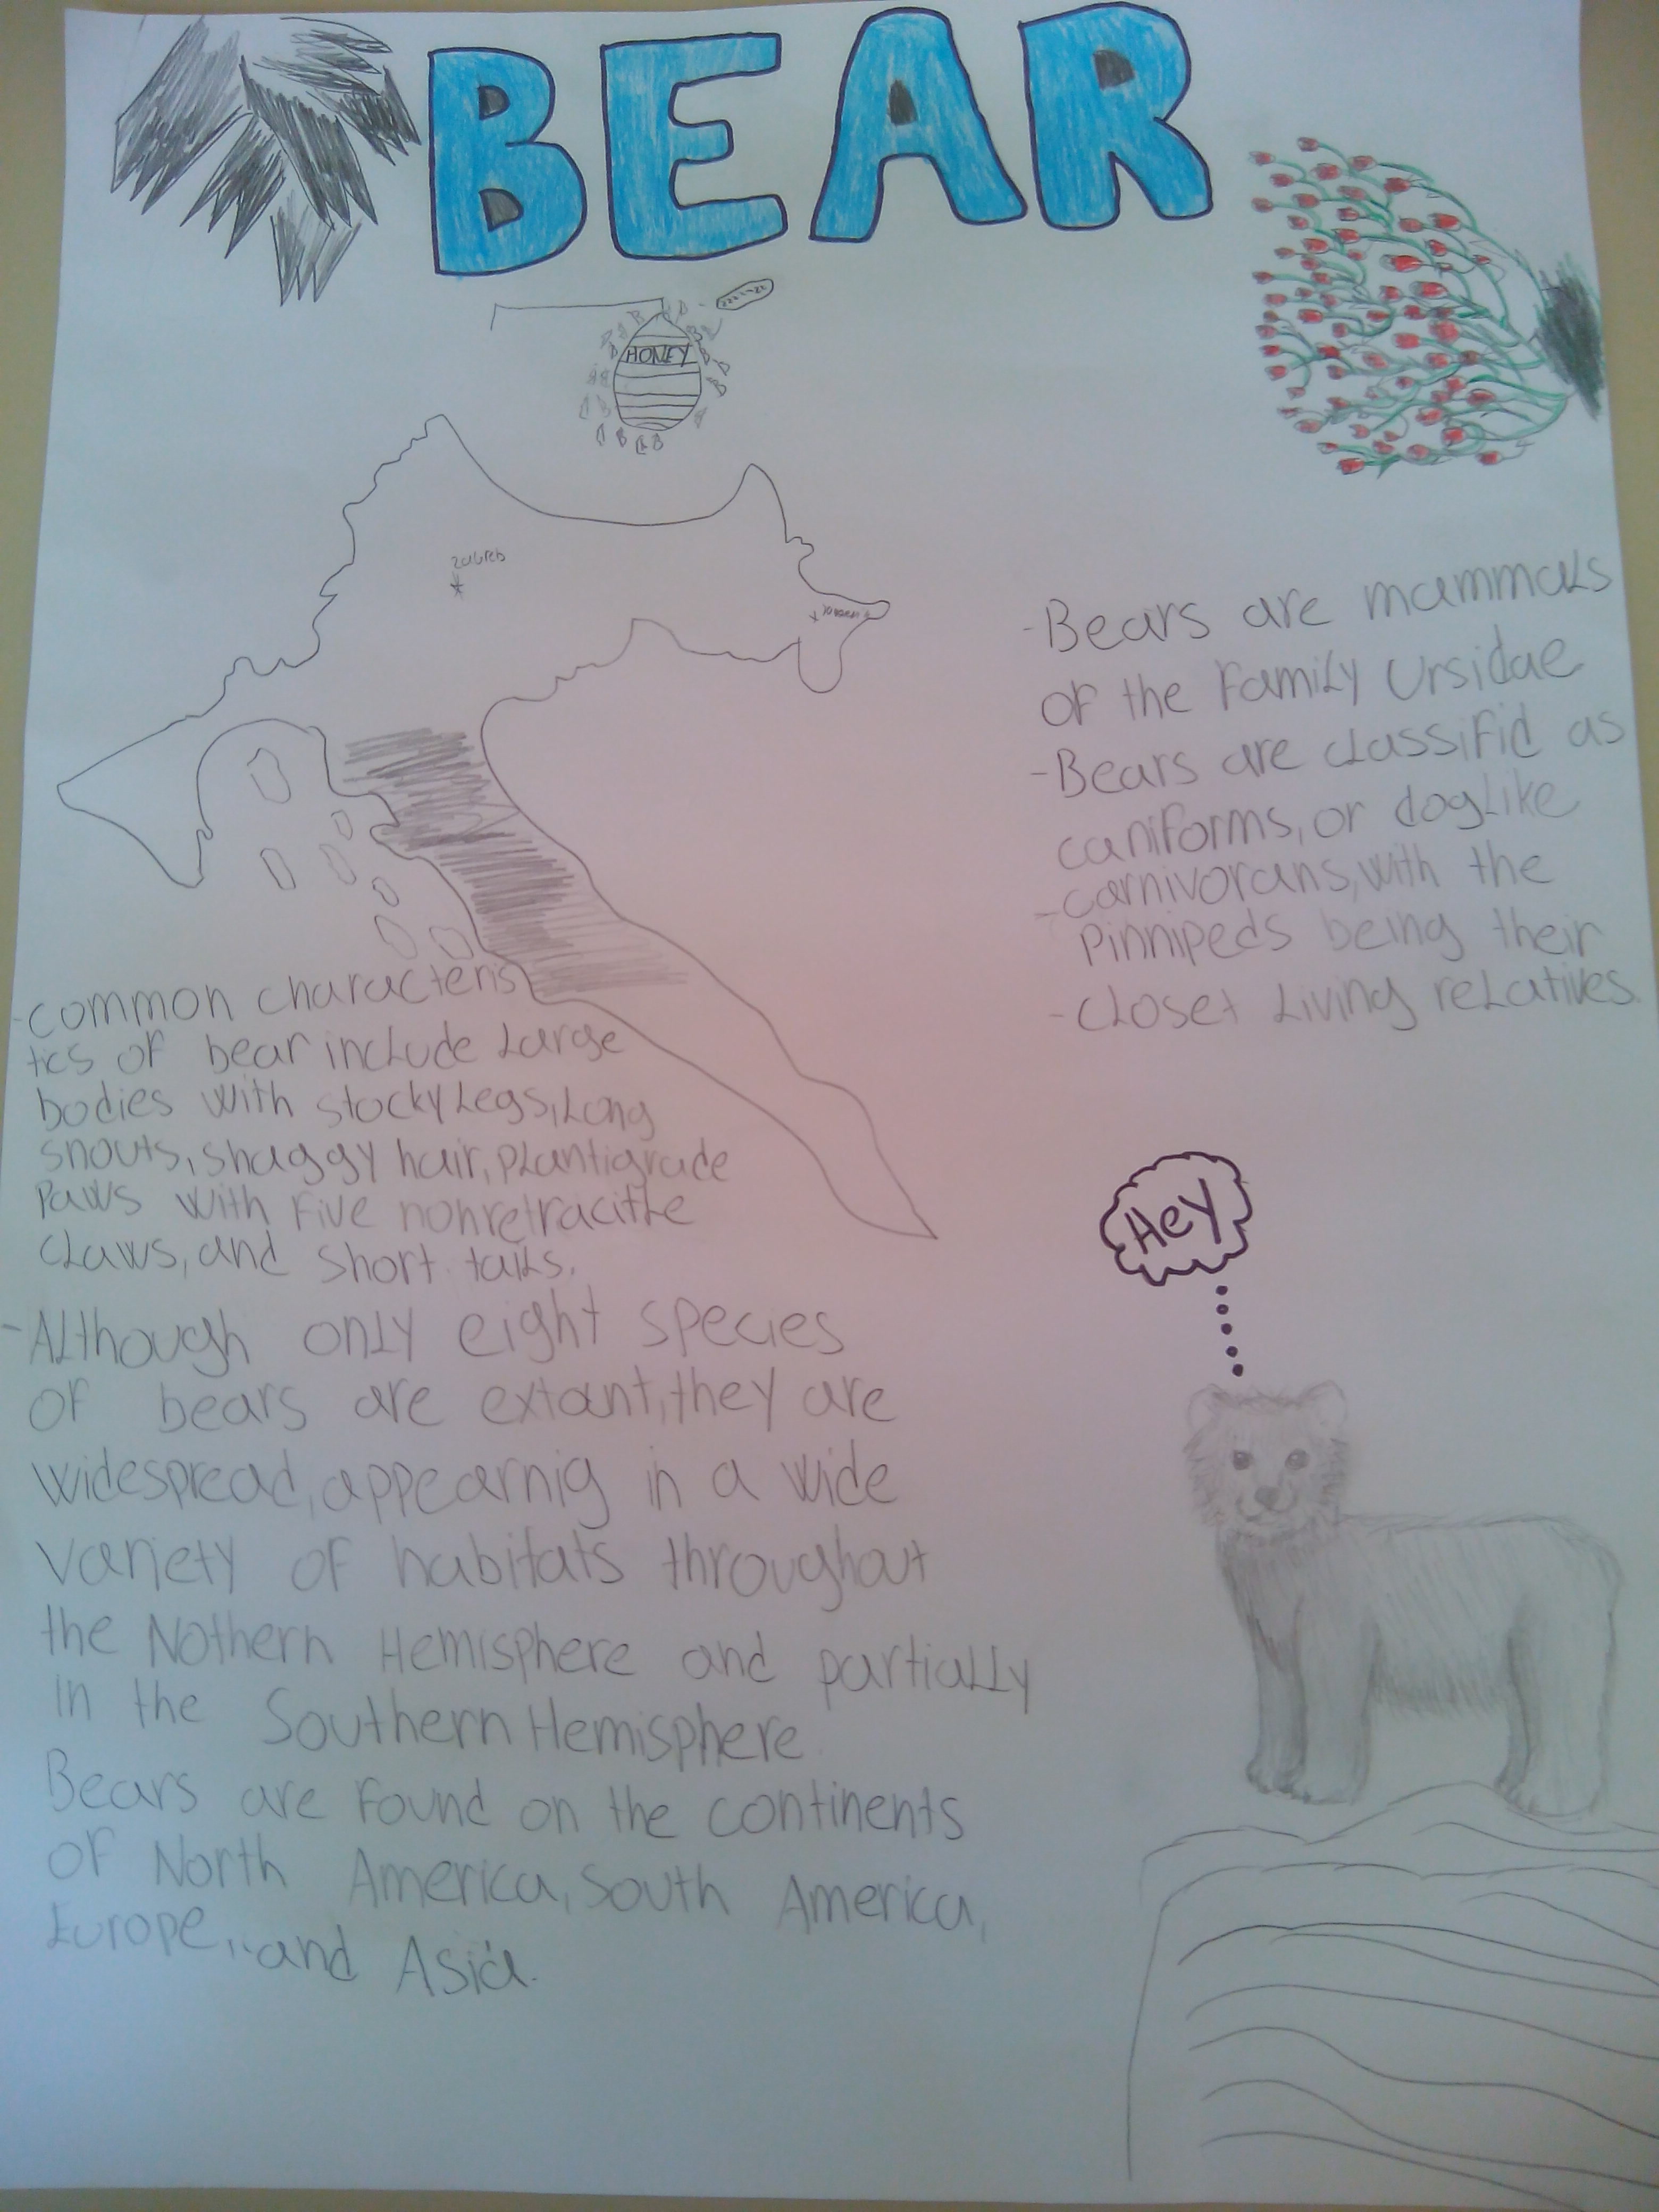 BEAR
HONEY
Zagreb
-Bears are mammals
of the Family Ursidae
-Bears are classifid as
caniforms, or doglike
-carnivorans, with the
pinnipeds being their
-closet living relatives.
-common characteris
tics of bear include large
bodies with stocky legs, long
snouts, shaggy hair, plantigrade
paws with five nonretracitle
claws, and short tails.
-Although only eight species
of bears are extant, they are
widespread, appearnig in a wide
variety of habitats throughout
the Nothern Hemisphere and partially
in the Southern Hemisphere.
Bears are found on the continents
of North America, South America,
Europe, and Asia.
Hey